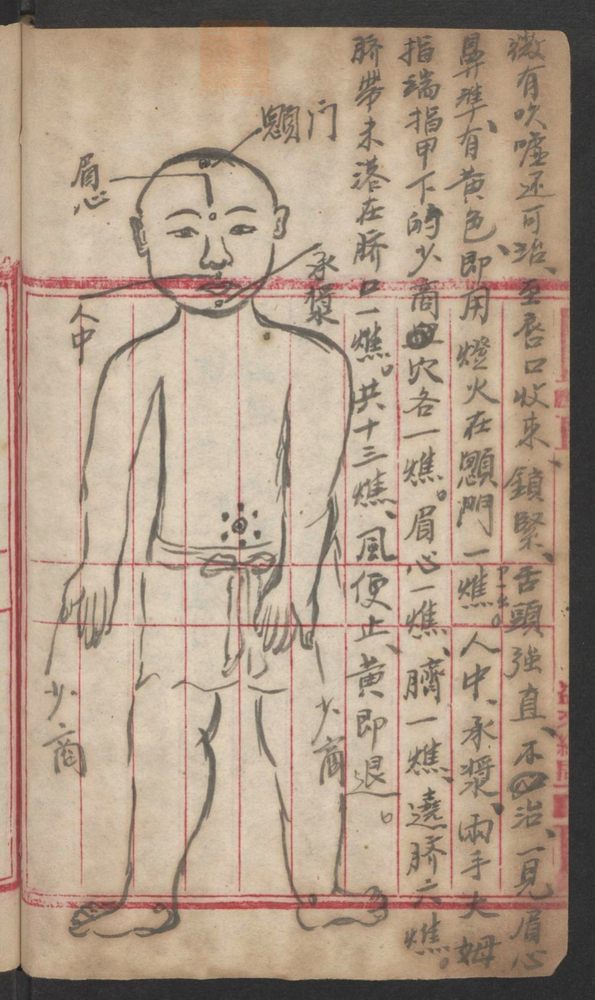 微有吹噓還可治、至唇口收束、鎖緊、舌頭強直、不必治、一見眉心
鼻準、有黃色、即用燈火在顖門一燋。人中、承漿、兩手大姆
指端指甲下的少商穴各一燋。眉心一燋、臍一燋、遶臍六燋。
臍帶未落在臍口一燋。共十三燋、風便止、黃即退。
顖门
眉心
承漿
人中
少商
少商